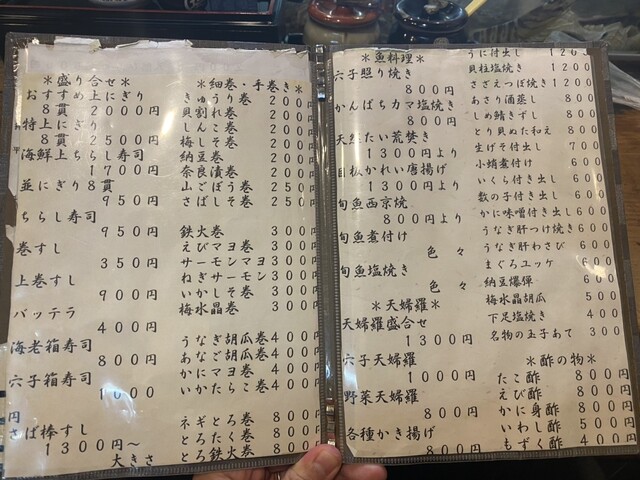 ＊盛り合せ＊
おすすめ上にぎり
８貫 ２０００円
特上にぎり
８貫 ２５００円
海鮮上ちらし寿司
１７００円
並にぎり８貫
９５０円
ちらし寿司
９５０円
巻すし
３５０円
上巻すし
９００円
バッテラ
４００円
海老箱寿司
８００円
穴子箱寿司
１０００
円
さば棒すし
１３００円〜
大きさ
＊細巻・手巻き＊
きゅうり巻 ２００円
貝割れ巻 ２００円
しんこ巻 ２００円
梅しそ巻 ２００円
納豆巻 ２００円
奈良漬巻 ２５０円
山ごぼう巻 ２５０円
さばしそ巻 ２５０
鉄火巻 ３００円
えびマヨ巻 ３００円
サーモンマヨ ３００
ねぎサーモン ３００
いかしそ巻 ３００円
梅水晶巻 ３００
うなぎ胡瓜巻４００
あなご胡瓜巻４００
かにマヨ巻 ４００円
いかたらこ巻４００
ネギとろ巻 ８００円
とろたく巻 ８００円
とろ鉄火巻 ８００
＊魚料理＊
穴子照り焼き
８００円
かんぱちカマ塩焼き
８００円
天然たい荒焚き
１３００円より
目板かれい唐揚げ
１３００円より
旬魚西京焼
８００円より
旬魚煮付け
色々
旬魚塩焼き
色々
＊天婦羅＊
天婦羅盛合せ
１３００円
穴子天婦羅
１０００円
野菜天婦羅
８００円
各種かき揚げ
８００円
うに付出し
貝柱塩焼き １２００
さざえつぼ焼き１２００
あさり酒蒸し ８００
しめ鯖きずし ８００
とり貝ぬた和え ８００
生げそ付出し ７００
小蛸煮付け ６００
いくら付き出し ６００
数の子付き出し ６００
かに味噌付き出し６００
うなぎ肝つけ焼き６００
うなぎ肝わさび ６００
まぐろユッケ ６００
納豆爆弾 ６００
梅水晶胡瓜 ５００
下足塩焼き ４００
名物の玉子あて ３００
＊酢の物＊
たこ酢 ８００円
えび酢 ８００円
かに身酢 ８００円
いわし酢 ５００円
もずく酢 ４００円